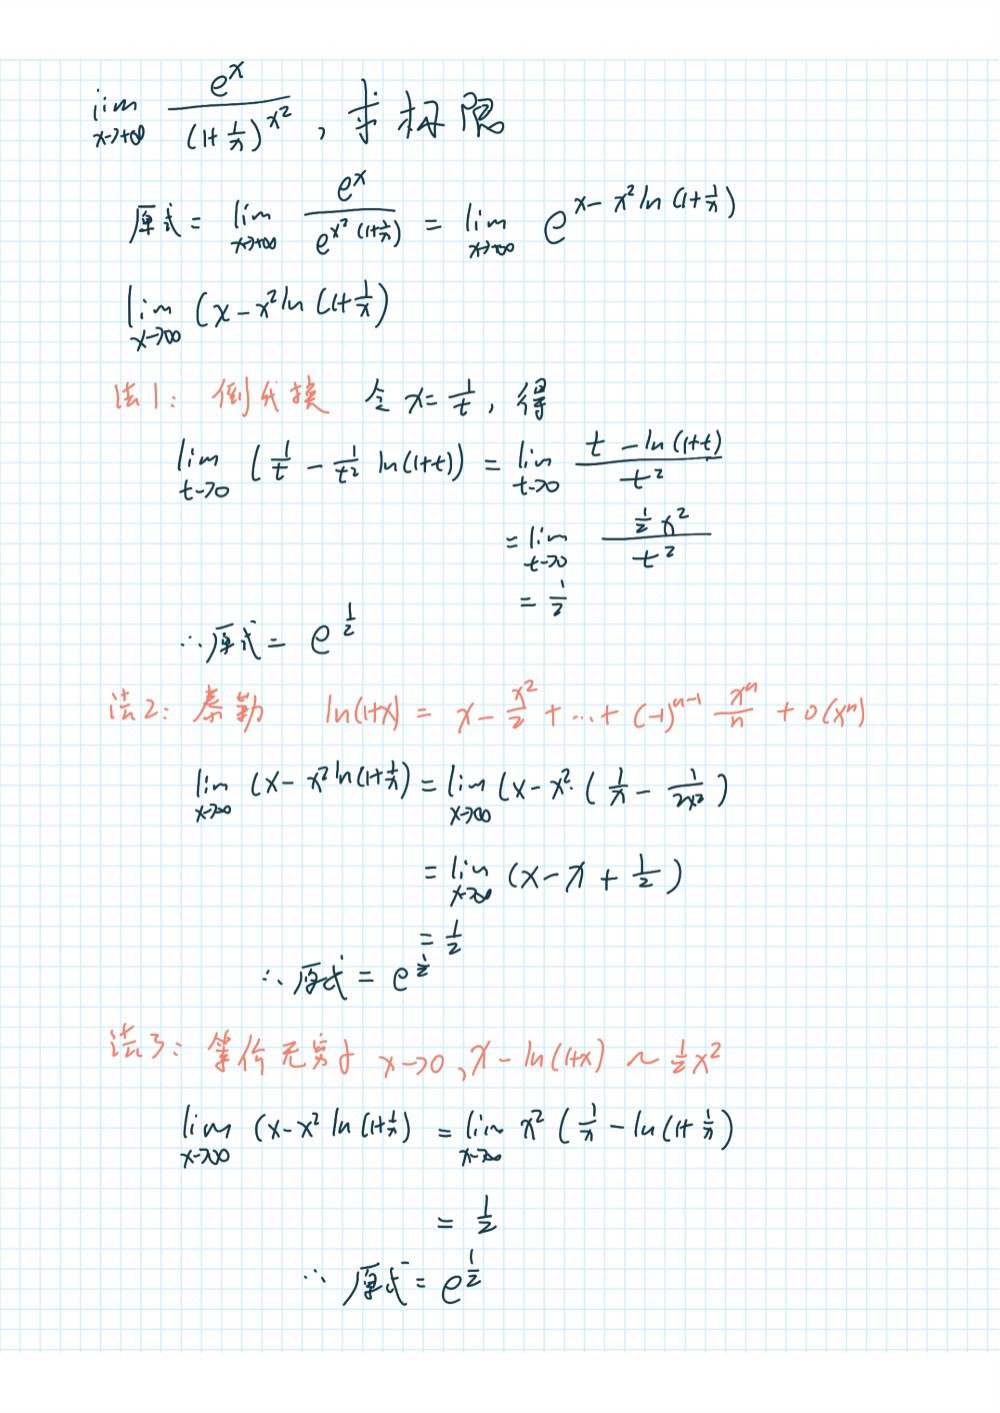 lim x→+∞ e^x / (1+1/x)^x², 求极限
原式 = lim x→+∞ e^x / e^x²(1+1/x) = lim x→+∞ e^x-x²ln(1+1/x)
lim x→∞ (x-x²ln(1+1/x)
法1: 倒代换 令x=1/t, 得
lim t→0 (1/t - 1/t² ln(1+t)) = lim t→0 t-ln(1+t) / t²
= lim t→0 ½x² / t²
= ½
∴原式 = e^½
法2: 泰勒 ln(1+x) = x - x²/2 + ... + (-1)^n-1 x^n/n + o(x^n)
lim x→∞ (x-x²ln(1+1/x) = lim x→∞ (x-x²·(1/x - 1/2x²)
= lim x→∞ (x-x+½)
= ½
∴原式 = e^½
法3: 等价无穷小 x→0, x-ln(1+x) ~ ½x²
lim x→∞ (x-x² ln(1+1/x) = lim x→∞ x²(1/x - ln(1+1/x)
= ½
∴原式 = e^½